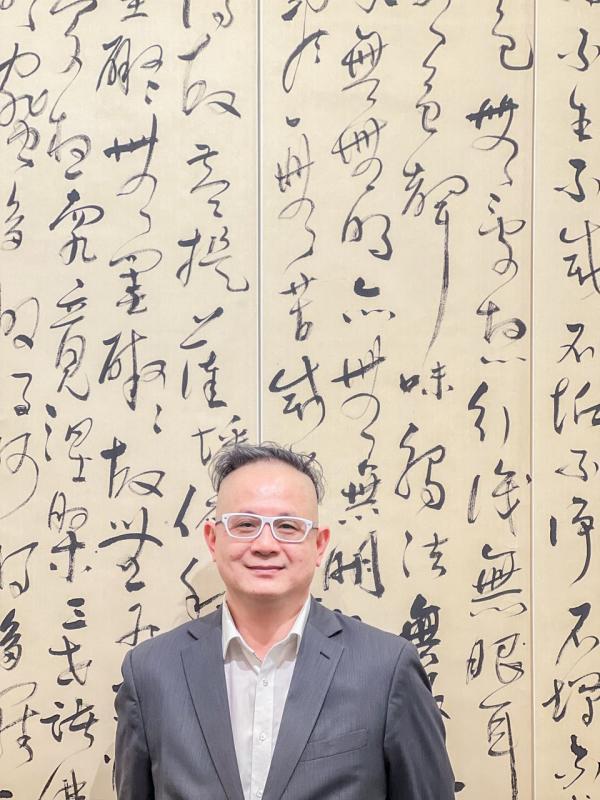 不生不滅不垢不淨不增
色無受想行識無眼耳
色聲味觸法無
無無明亦無無
無苦集
得故菩提薩埵依
罣礙無罣礙故無有
夢想究竟涅槃三世諸佛
蜜多故得阿耨多羅